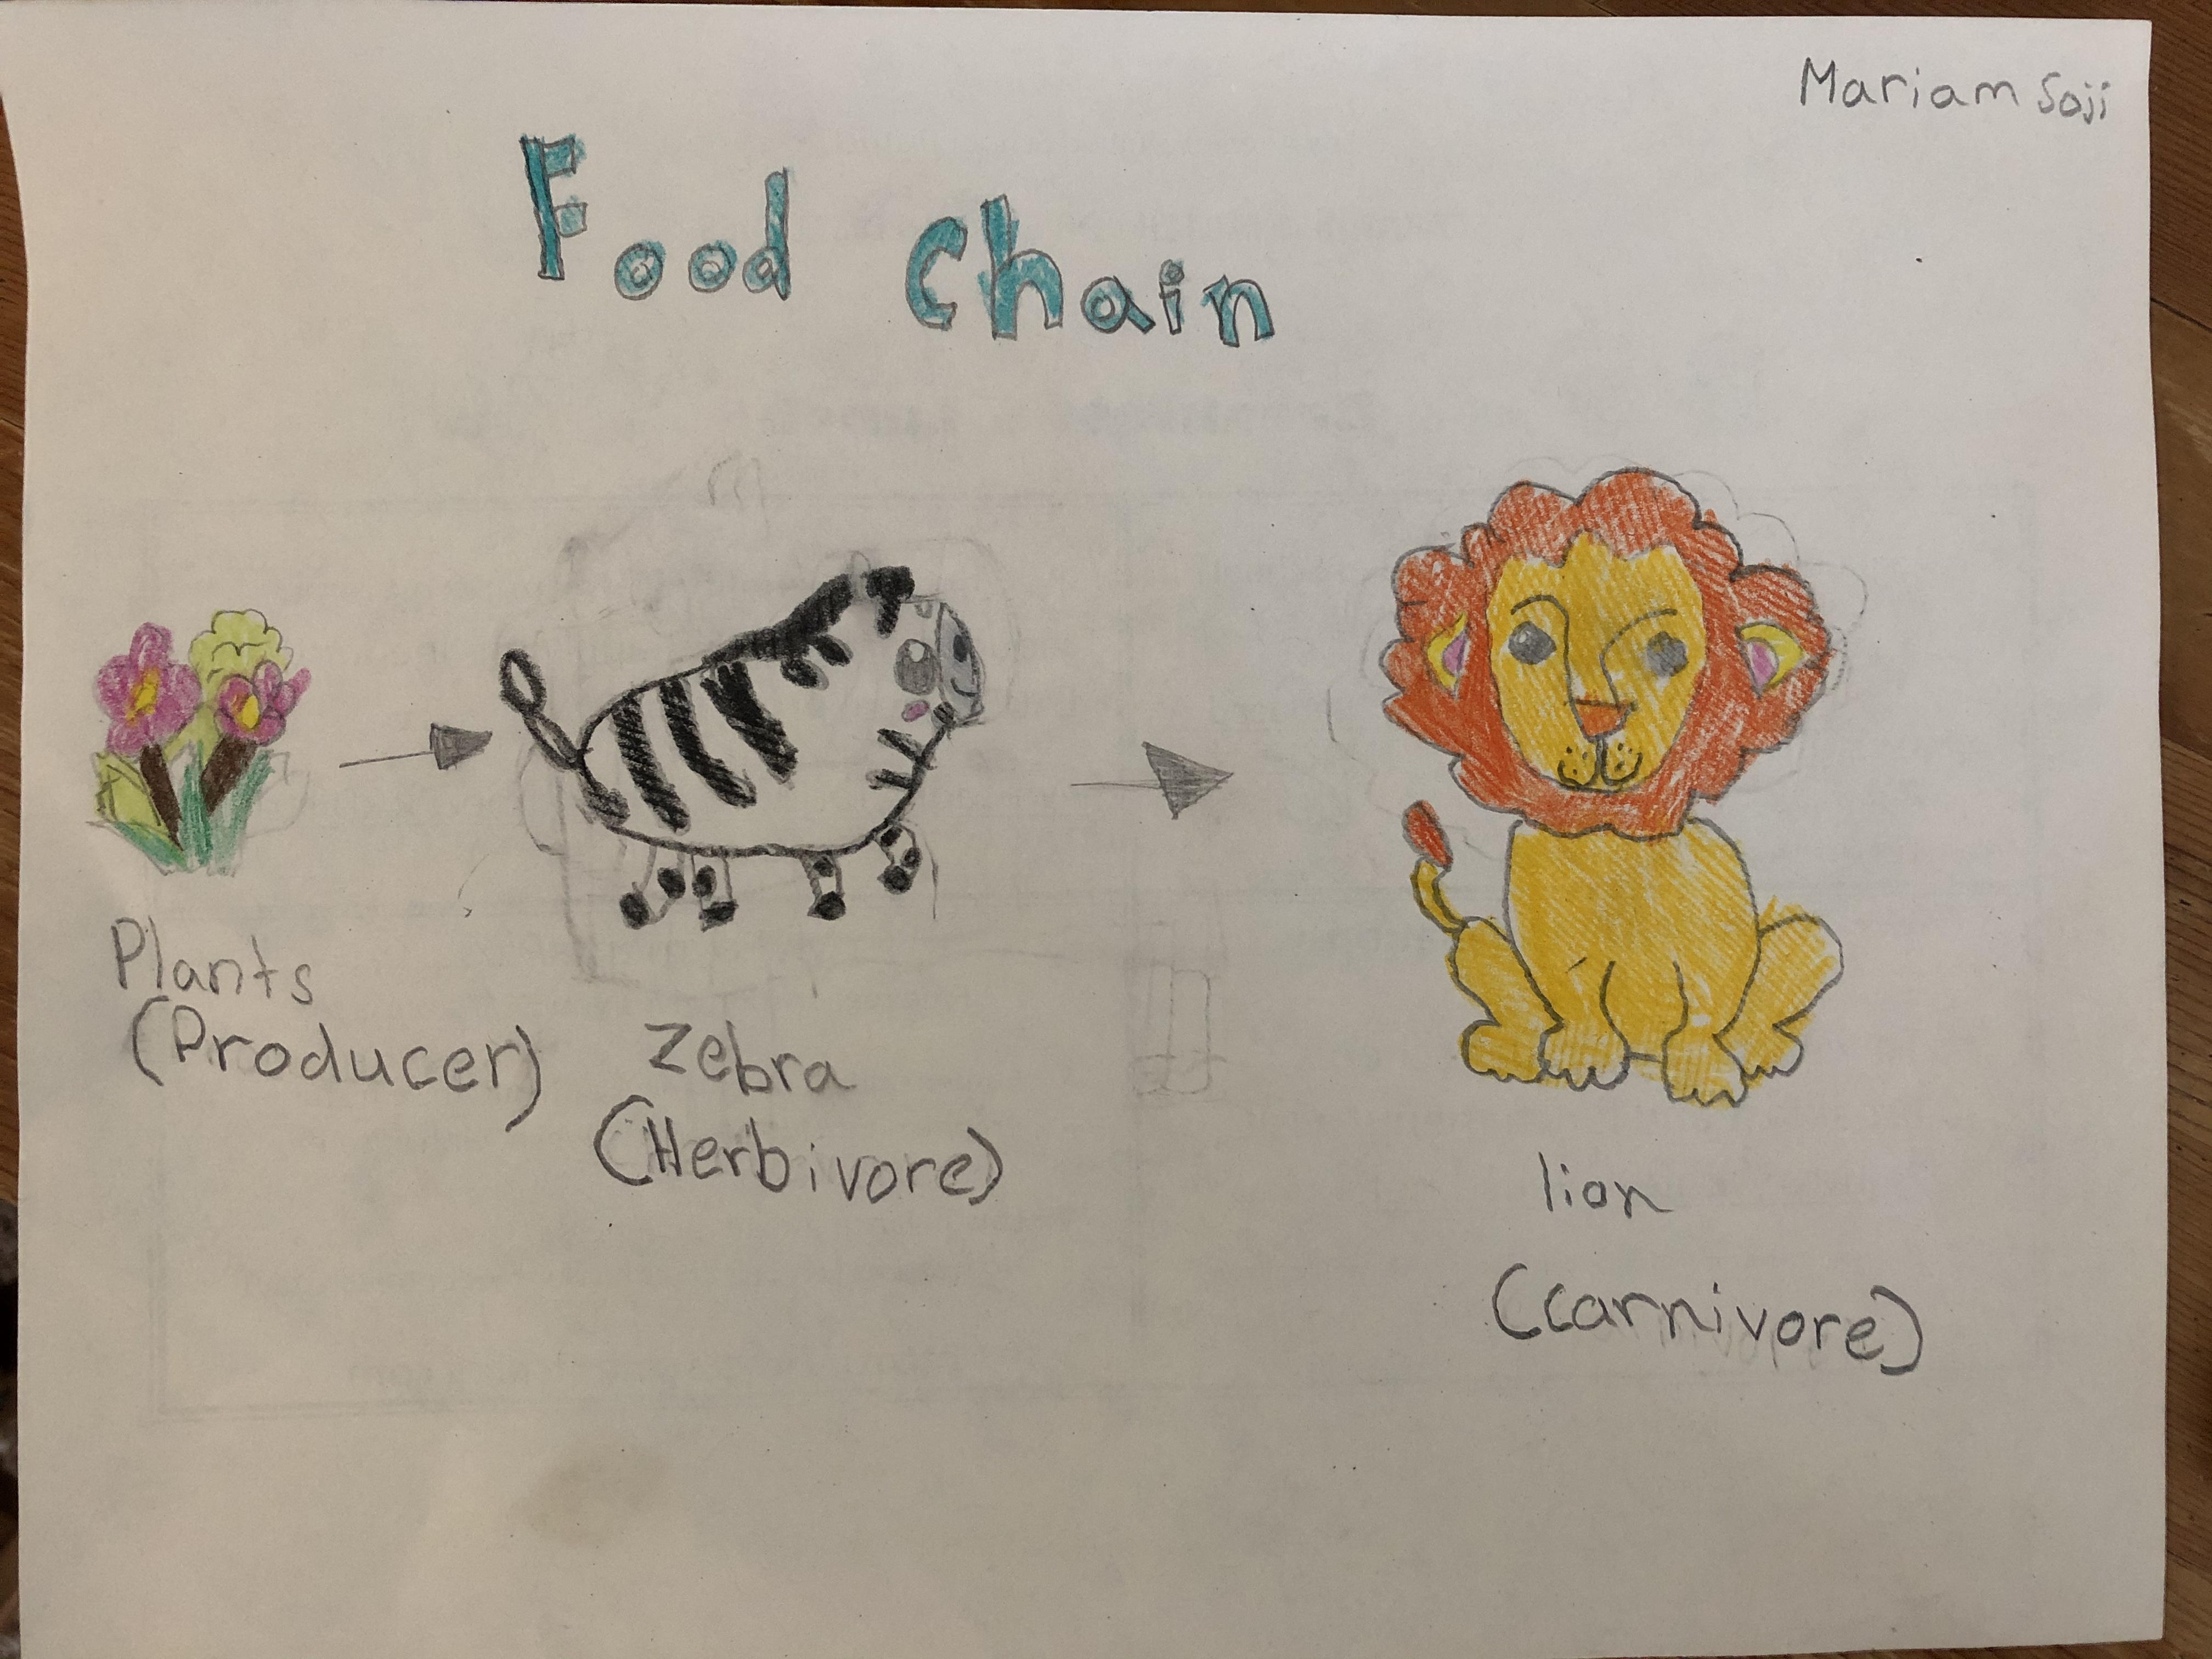 Mariam Soji
Food Chain
Plants
(Producer)
Zebra
(Herbivore)
lion
(Carnivore)